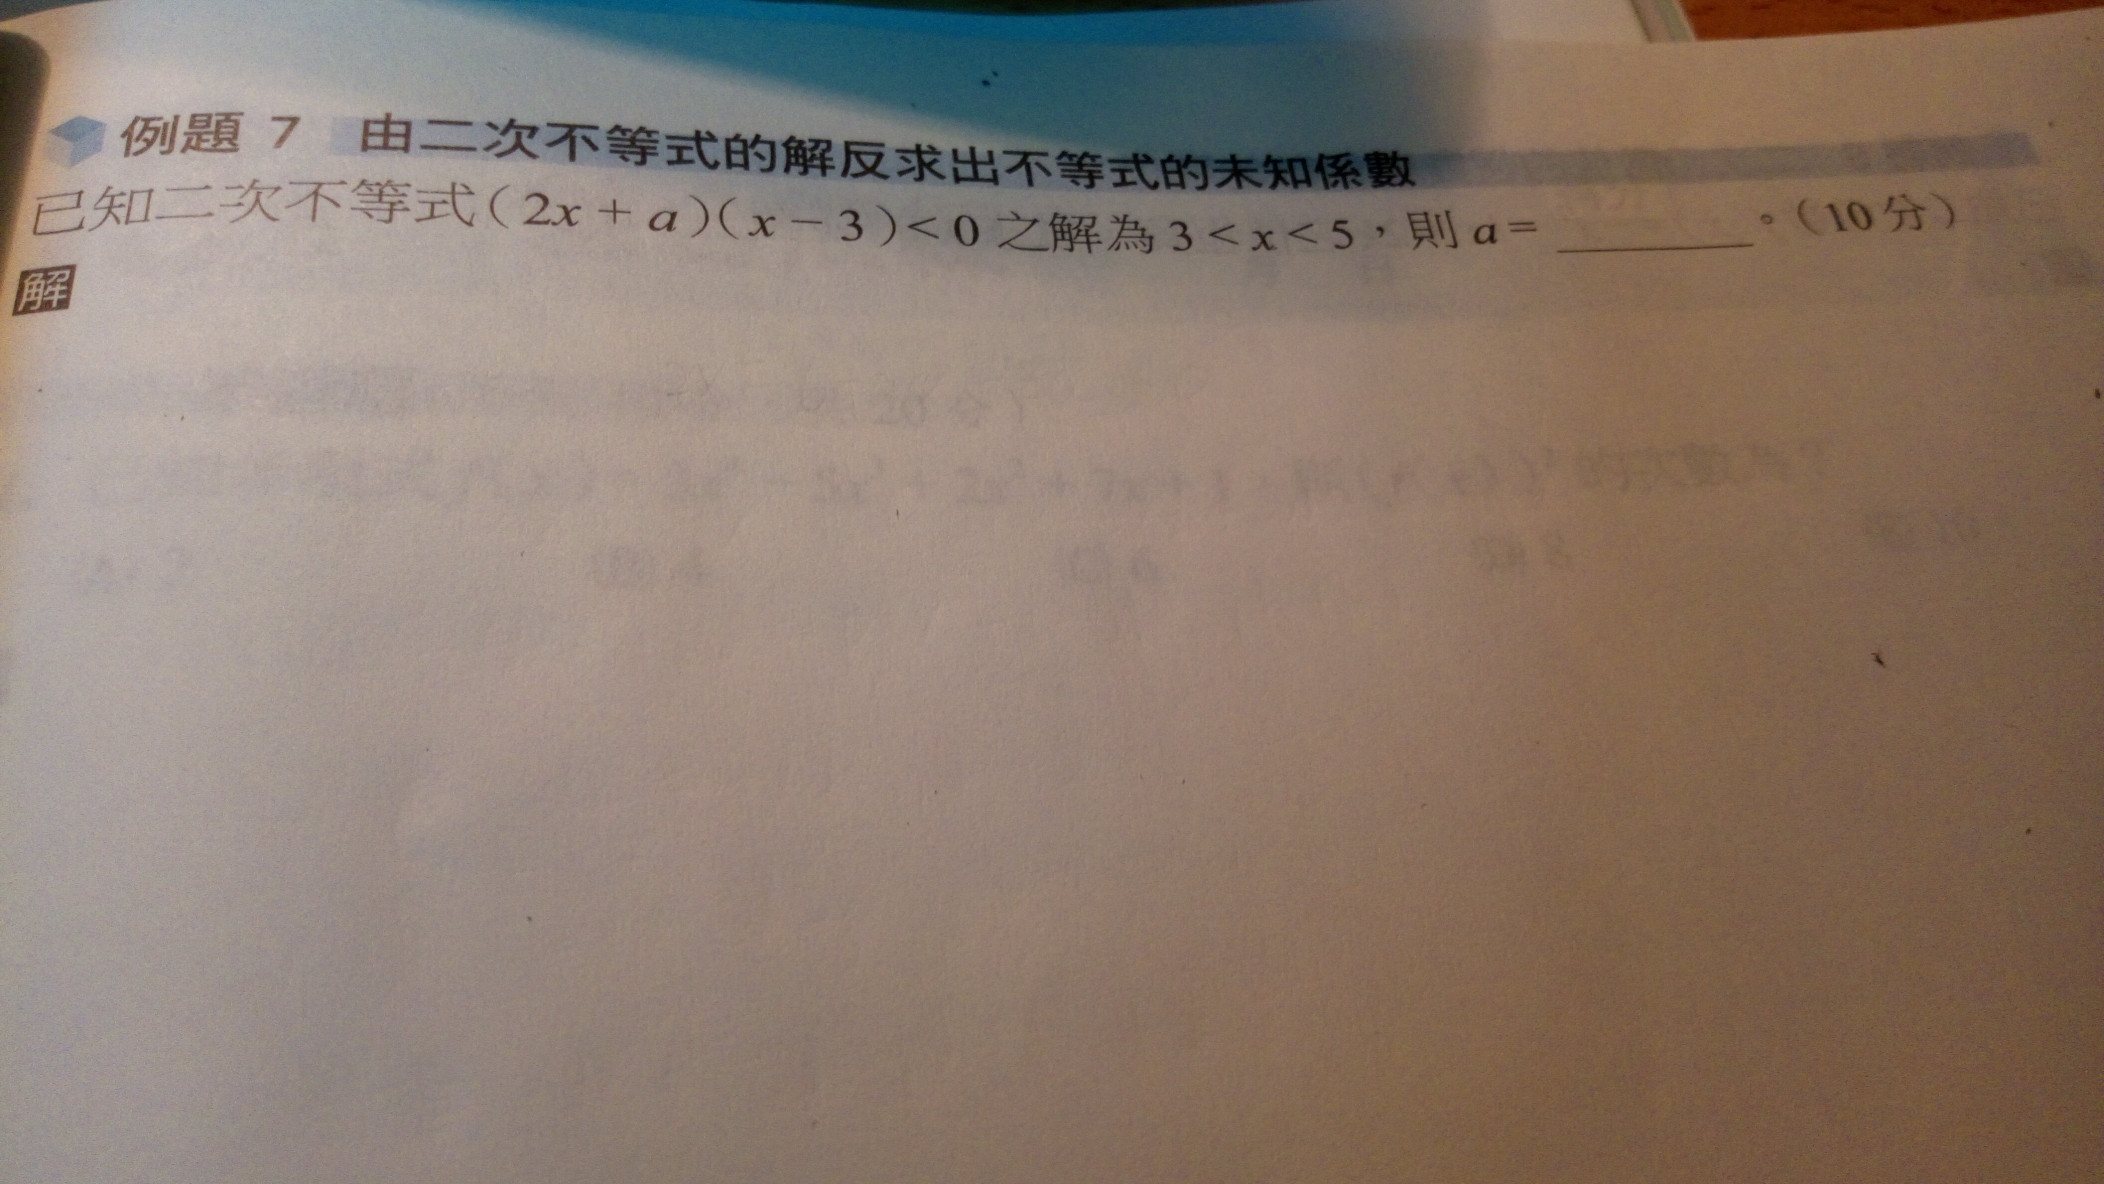 例題 7 由二次不等式的解反求出不等式的未知係數
已知二次不等式(2x + a)(x − 3)< 0 之解為 3 < x < 5,則 a = ________。(10 分)
解